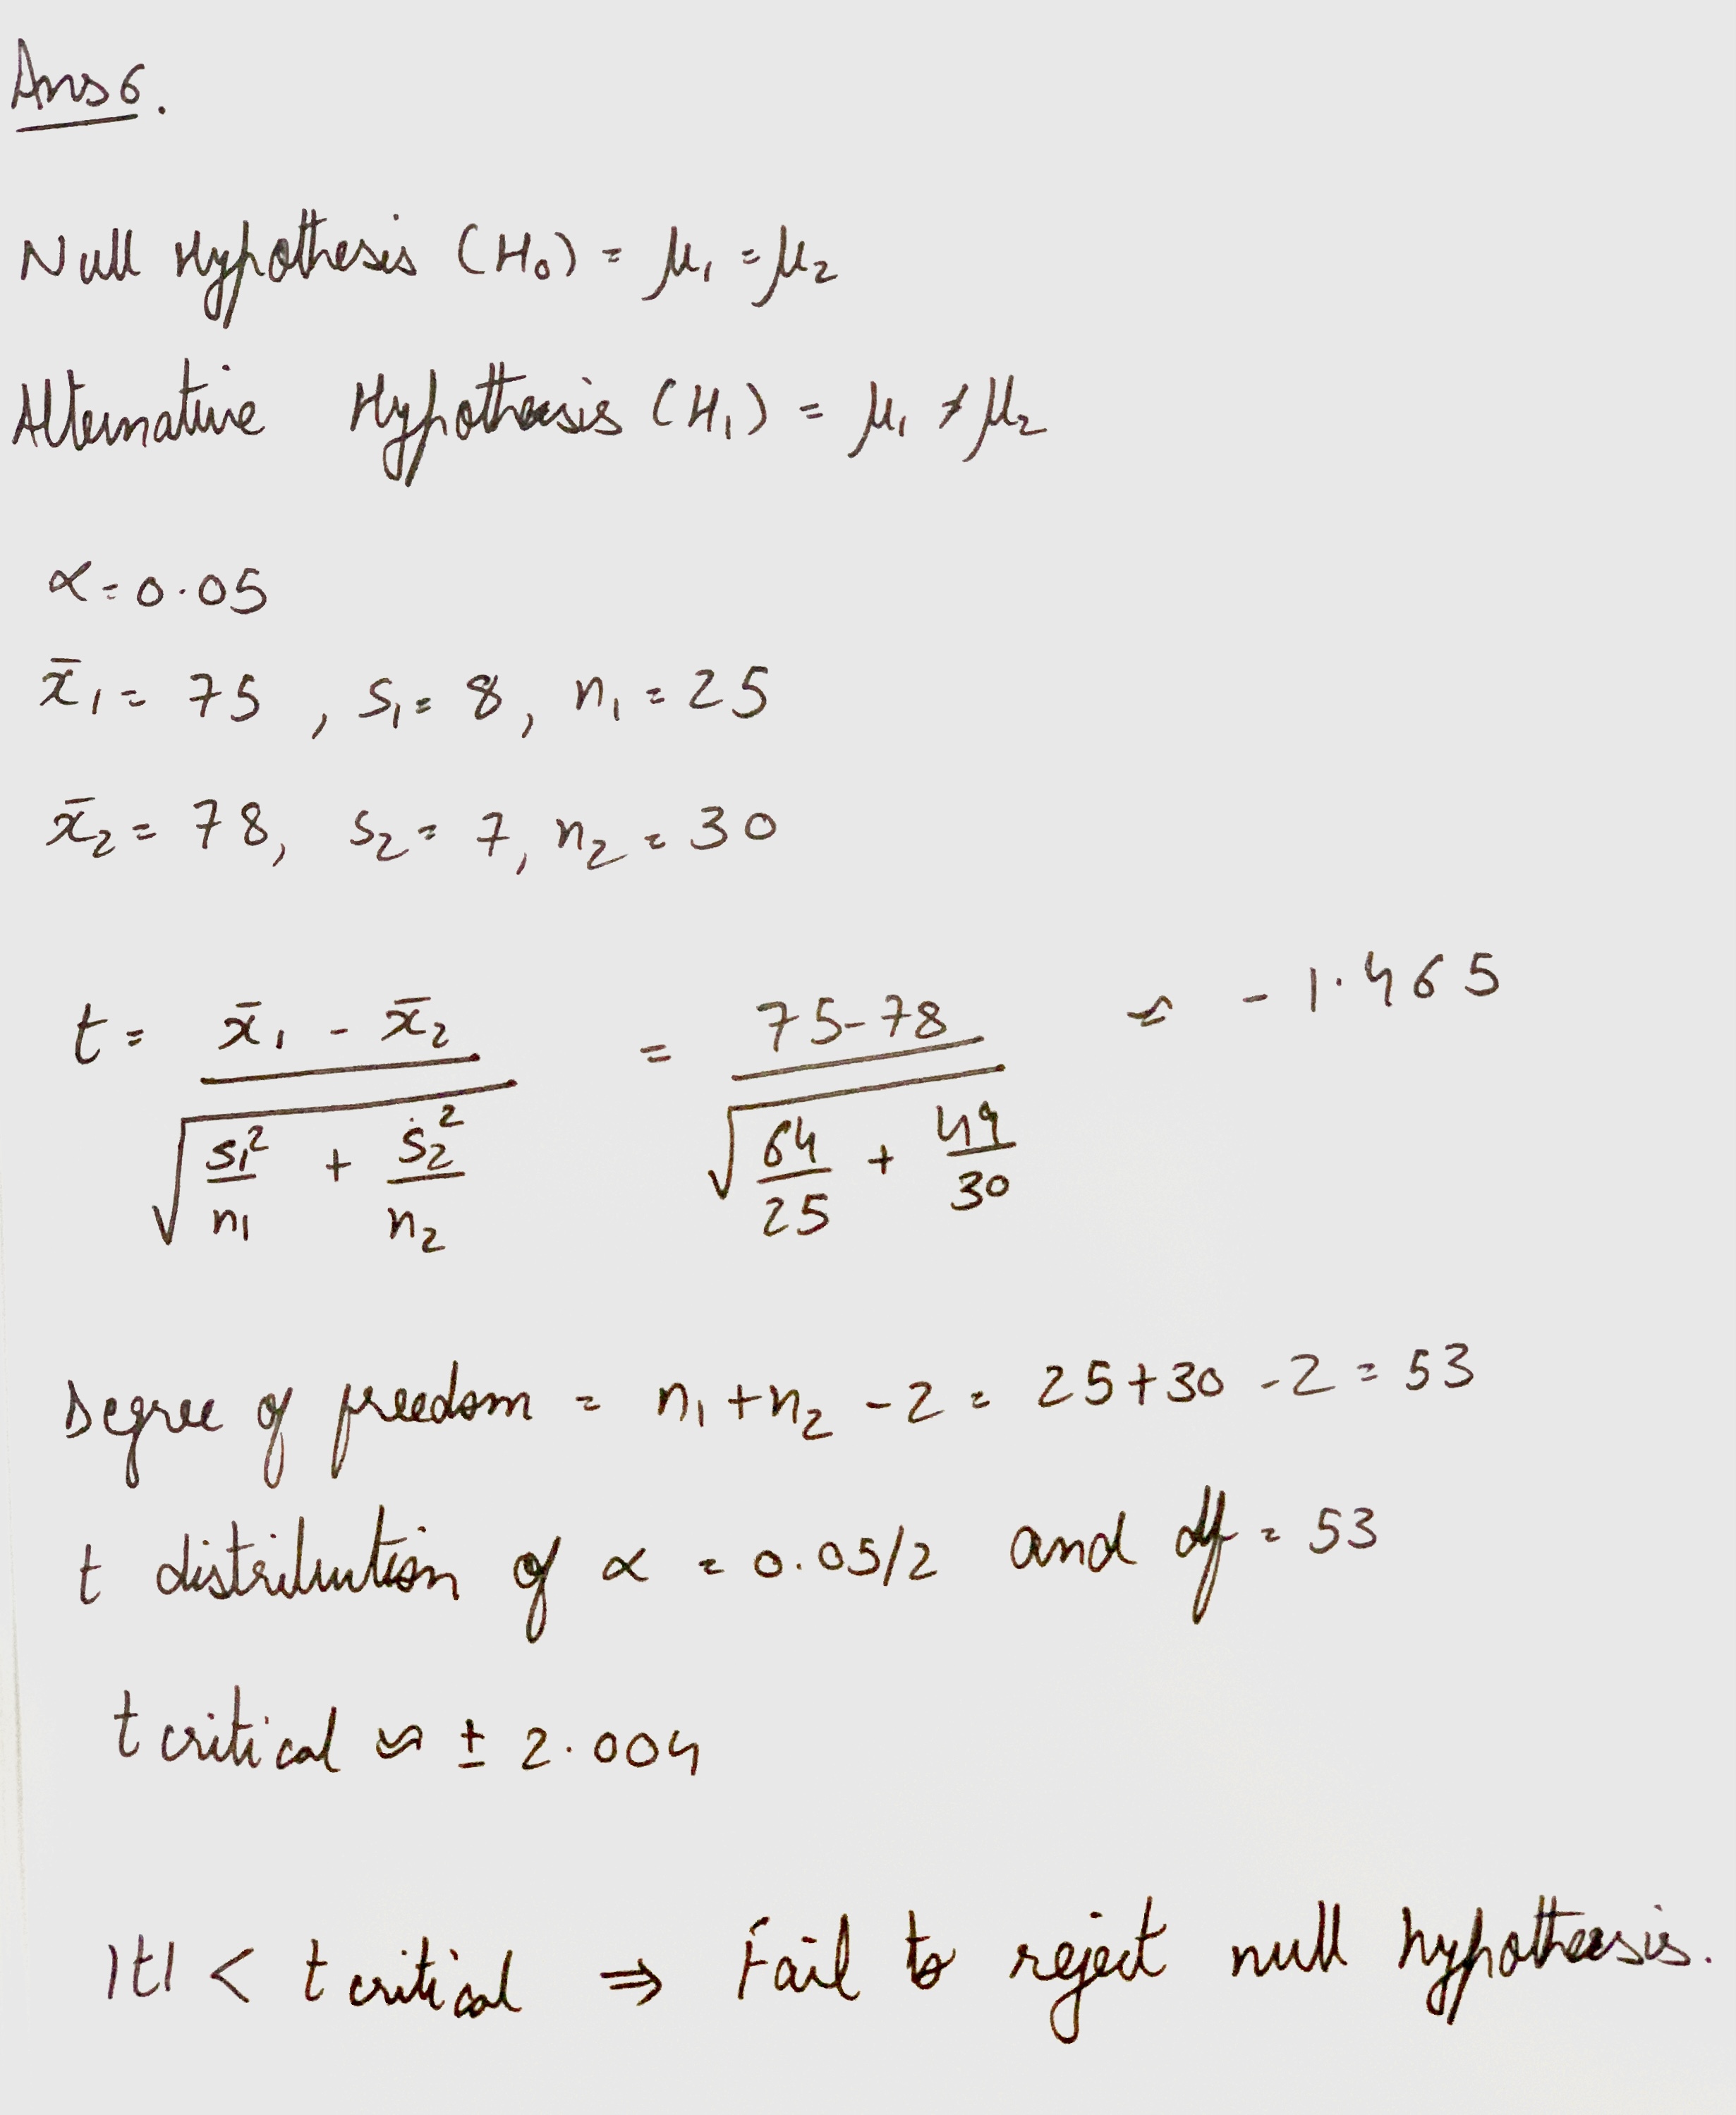 Ans 6.
Null Hypothesis (H₀) = μ₁ = μ₂
Alternative Hypothesis (H₁) = μ₁ ≠ μ₂
α = 0.05
x̄₁ = 75 , s₁ = 8, n₁ = 25
x̄₂ = 78, s₂ = 7, n₂ = 30
t = (x̄₁ - x̄₂) / √(s₁²/n₁ + s₂²/n₂) = (75-78) / √(64/25 + 49/30) ≈ -1.465
Degree of freedom = n₁ + n₂ - 2 = 25+30 -2 = 53
t distribution of α = 0.05/2 and df = 53
t critical ≈ ± 2.004
|t| < t critical ⇒ Fail to reject null hypothesis.